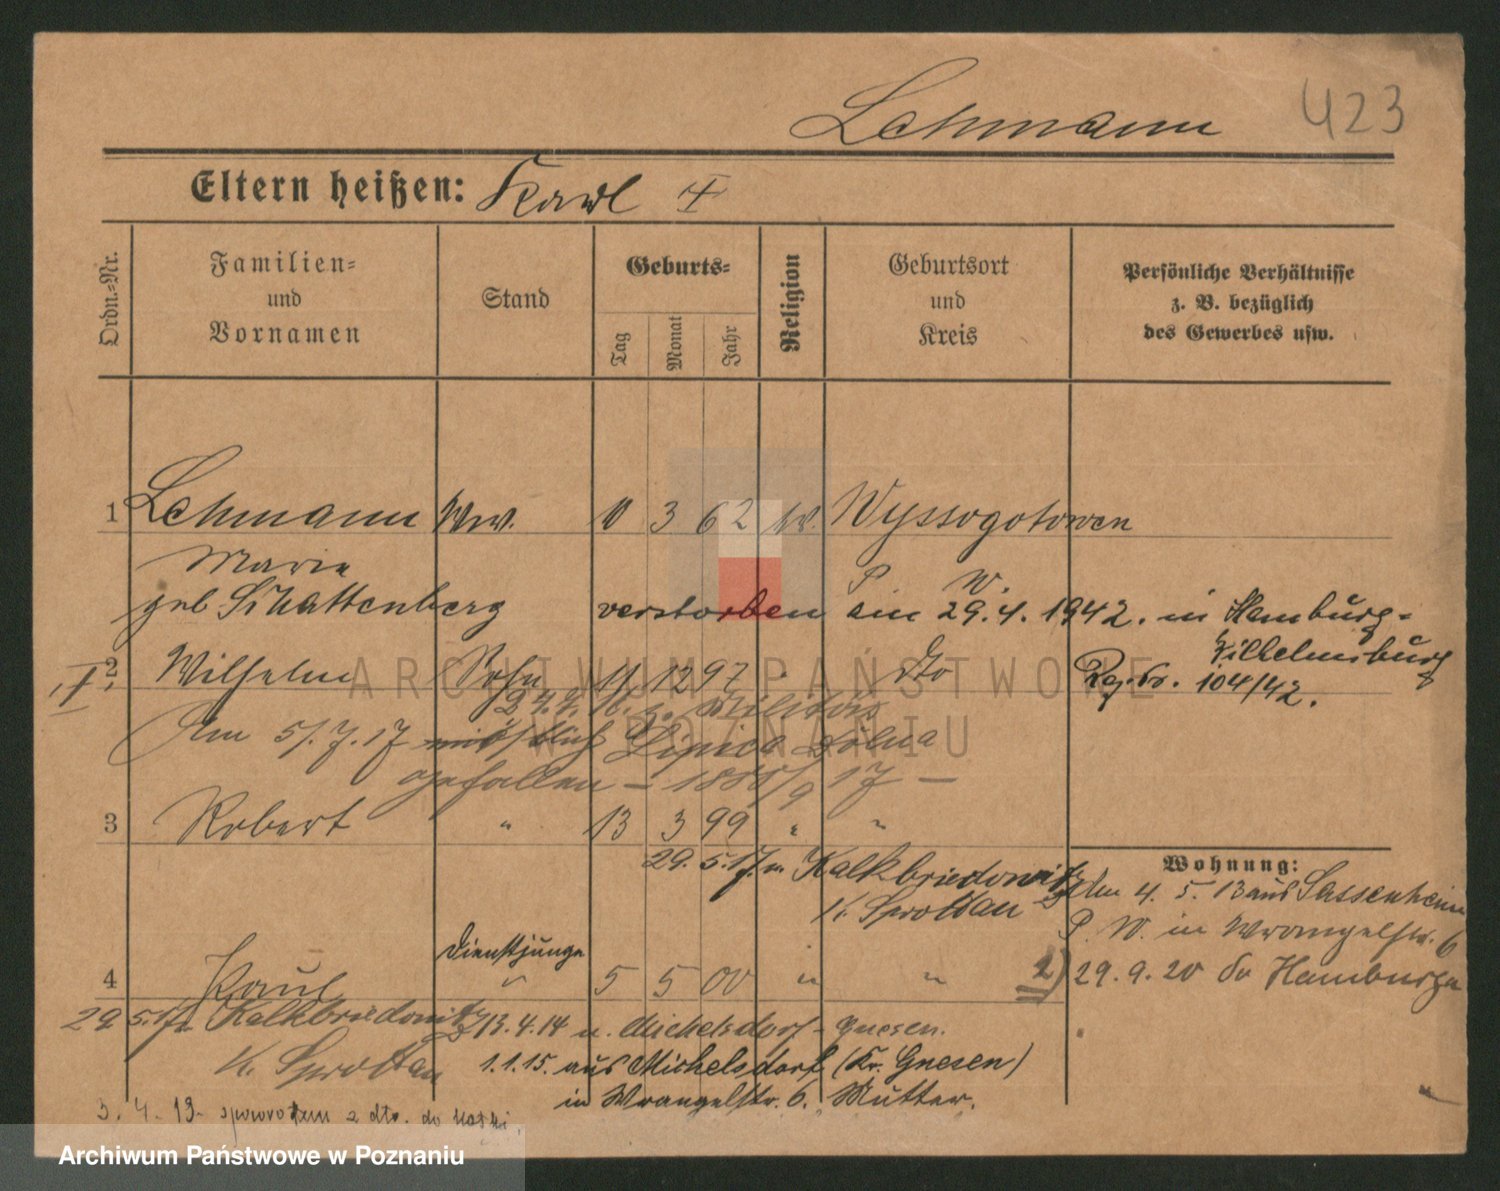 Lehmann 423
Eltern heißen: Karl I
Ordn.-Nr.
Familien-
und
Vornamen
Stand
Geburts-
Tag
Monat
Jahr
Religion
Geburtsort
und
Kreis
Persönliche Verhältnisse
z. B. bezüglich
des Gewerbes usw.
1 Lehmann Ww. 3 62 Wyssogotowen
Marie P. W.
geb Schattenberg verstorben am 29.4.1942. in Hamburg-
Wilhelmsburg
2 Wilhelm Sohn 11 12 97 " dto Reg. Nr. 104/42.
z. Militär
Am 5/.7.17 Lipica Dolna
gefallen – 1888/9 17 –
3 Robert " 13 3 99 " "
29. 5. 17. n. Kalkbriedowitz
K. Sprottau
Wohnung:
den 4. 5. 13 aus Sassenheim
P. W. in Wrangelstr. 6
2) 29. 9. 20 Hamburg
Dienstjunge
4 Paul " 5 5 00 " "
29.5.17 Kalkbriedowitz 13.4.14 n. Michelsdorf - Gnesen.
K. Sprottau 1.1.15. aus Michelsdorf (Kr. Gnesen)
in Wrangelstr. 6. Mutter.
3. 4. 13 z dto. do
ARCHIWUM PAŃSTWOWE
W POZNANIU
Archiwum Państwowe w Poznaniu